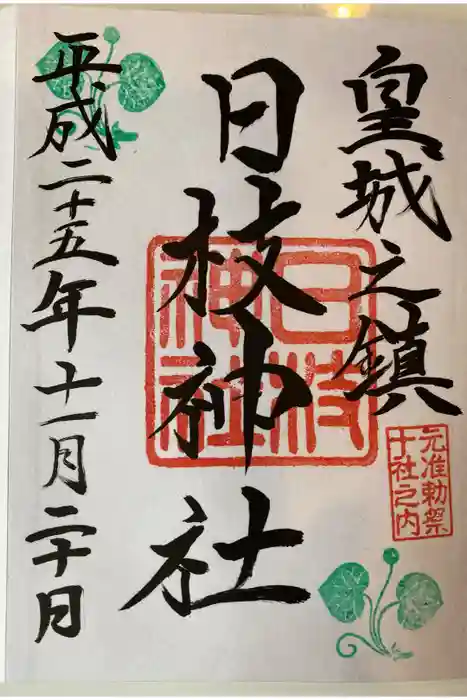 皇城之鎮
元准勅祭
十社之内
日枝神社
日枝
神社
平成二十五年十一月二十日